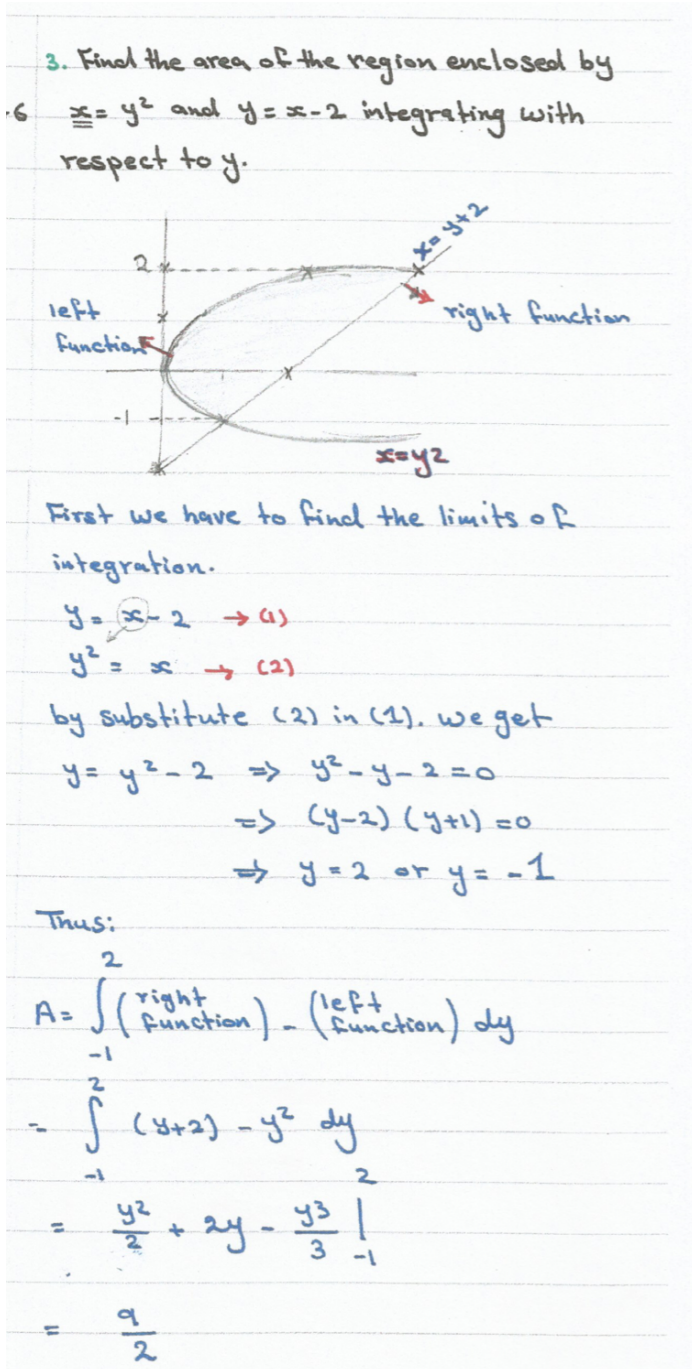 3. Find the area of the region enclosed by
-6 x = y² and y = x - 2 integrating with
respect to y.
x = y+2
2
left
function
right function
-1
x=y2
First we have to find the limits of
integration.
y = x - 2 → (1)
y² = x → (2)
by substitute (2) in (1). we get
y = y² - 2 => y² - y - 2 = 0
=> (y-2) (y+1) = 0
=> y = 2 or y = -1
Thus:
A = ∫₋₁² (right function) - (left function) dy
= ∫₋₁² (y+2) - y² dy
= y²/2 + 2y - y³/3 |₋₁²
= 9/2